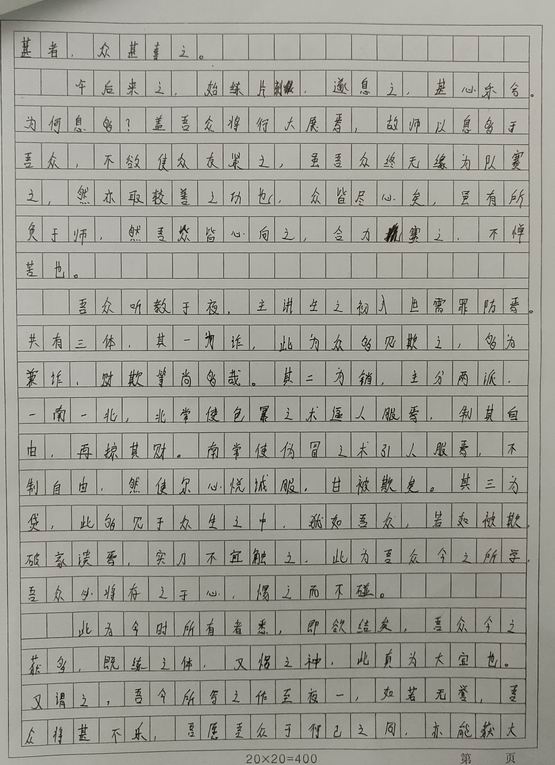 甚者，众甚喜之。
午后来之，始练片刻，遂息之，甚心乐舍。
为何息多？盖吾众将行大展焉，故师以息多于
吾众，不欲使众衣累之，虽吾众终无缘为队赛
之，然亦取较善之功也，众皆尽心矣，虽有所
负于师，然吾众皆心向之，合力赛之，不惮
苦也。
吾众听教于夜，主讲生之初入世需罪防焉。
共有三体，其一为诈，此为众多见欺之，多为
兼诈，财欺等尚多哉。其二为销，主分两派，
一南一北，北常使包裹之术逼人服焉，制其自
由，再掠其财。南常使伪冒之术引人服焉，不
制自由，然使尔心悦诚服，甘被欺矣。其三为
贷，此多见于众生之中，犹如吾众，若如被欺
破家误焉，实乃不宜触之，此为吾众今之所学
吾众必将存之于心，惕之而不碰。
此为今时所有者悉，即欲结矣，吾众今之
获多，既练之体，又惕之神，此真为大宜也。
又谓之，吾今所等之作至夜一，如若无誉，吾
众将甚不乐，吾愿吾众于行己之同，亦能获大
20×20=400
第 页